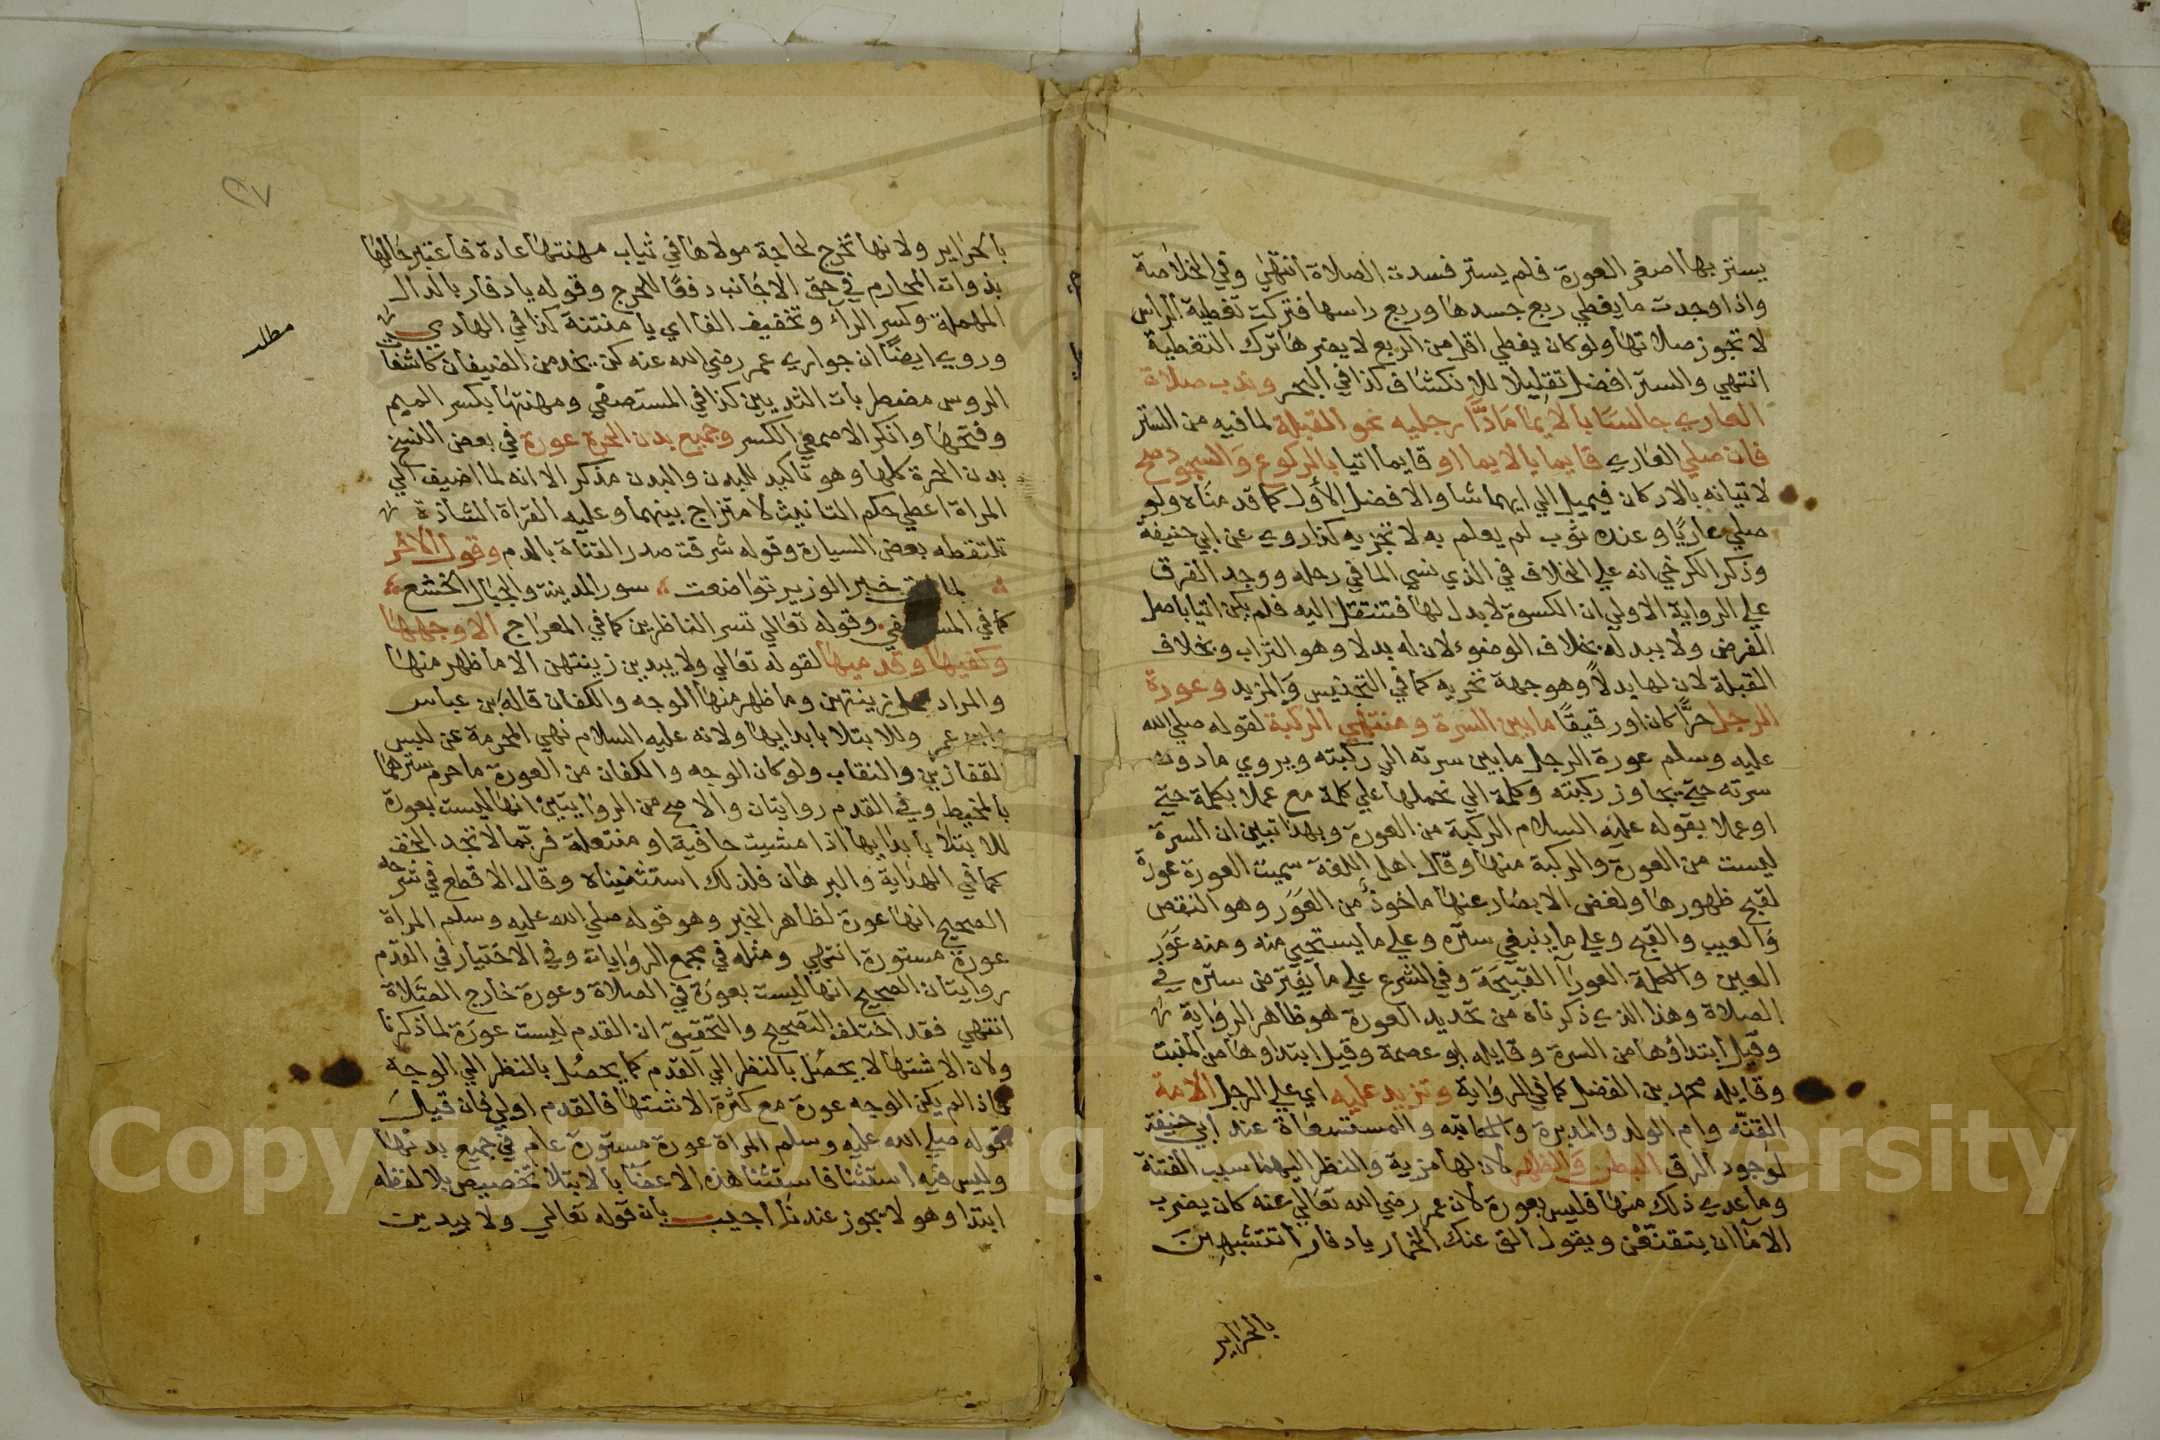 يستر بها اصغر العورة فلم يستر فسدت الصلاة انتهي وفي الخلاصة
واذا وجدت ما يغطي ربع جسدها وربع راسها فتركت تغطية الراس
لا تجوز صلاتها ولو كان يغطي اقل من الربع لا يضرها ترك التغطية
انتهي والستر افضل تقليلا للانكشاف كذا في البحر وندب صلاة
العاري جالسا بالايما مادًّا رجليه نحو القبلة لما فيه من الستر
فان صلي العاري قايما بالايما او قايما اتيا بالركوع والسجود صح
لاتيانه بالاركان فيميل الي ايهما شا والافضل الاول كما قدمناه ولو
صلي عاريًا وعنده ثوب لم يعلم به لا تجزيه كذا روي عن ابي حنيفة
وذكر الكرخي انه علي الخلاف في الذي نسي الما في رحله ووجد الفرق
علي الرواية الاولي ان الكسوة لا بدل لها فتنتقل اليه فلم يكن اتيا باصل
الفرض ولا ببدله بخلاف الوضوء لان له بدلا وهو التراب وبخلاف
القبلة لان لها بدلاً وهو جهة تحريه كما في التجنيس والمزيد وعورة
الرجل حرًّا كان او رقيقًا ما بين السرة ومنتهي الركبة لقوله صلي الله
عليه وسلم عورة الرجل ما بين سرته الي ركبته ويروي ما دون
سرته حتي يجاوز ركبته وكلمة الي نحملها علي كلمة مع عملا بكلمة حتي
او عملا بقوله عليه السلام الركبة من العورة وبهذا تبين ان السرة
ليست من العورة والركبة منها وقال اهل اللغة سميت العورة عورة
لقبح ظهورها ولغض الابصار عنها ماخوذ من العَوَر وهو النقص
والعيب والقبح وعلي ما ينبغي ستره وعلي ما يستحي منه ومنه عَوَر
العين والكلمة العورا القبيحة وفي الشرع علي ما يفترض ستره في
الصلاة وهذا الذي ذكرناه من تحديد العورة هو ظاهر الرواية
وقيل ابتداؤها من السرة وقايله ابو عصمة وقيل ابتداوها من المنبت
وقايله محمد بن الفضل كما في الرواية وتزيد عليه اي علي الرجل الامة
القنّه وام الولد والمدبرة والمكاتبه والمستسعاة عند ابي حنيفة
لوجود الرق البطن والظهر لان لها مزية والنظر اليهما سبب الفتنة
وما عدي ذلك منها فليس بعورة لان عمر رضي الله تعالي عنه كان يضرب
الاما ان يتقنعن ويقول الق عنك الخمار يا دفار اتتشبهين
بالحراير
٢٧
بالحراير ولانها تخرج لحاجة مولاها في ثياب مهنتها عادة فاعتبر حالها
بذوات المحارم في حق الاجانب دفعًا للحرج وقوله يا دفار بالدال
المهملة وكسر الرآ وتخفيف الفا اي يا منتنة كذا في الهادي
مطلب
وروي ايضًا ان جواري عمر رضي الله عنه كن يخدمن الضيفان كاشفات
الروس مضطربات الثديين كذا في المستصفي ومهنتها بكسر الميم
وفتحها وانكر الاصمعي الكسر وجميع بدن الحرة عورة في بعض النسخ
بدن الحرة كلها وهو تاكيد للبدن والبدن مذكر الا انه لما اضيف الي
المراة اعطي حكم التانيث لامتزاج بينهما وعليه القراة الشاذة
تلتقطه بعض السيارة وقوله شرقت صدر القناة بالدم وقول الاخر
لما خبر الوزير تواضعت سور المدينة والجبال الخشع
كما في وقوله تعالي تسر الناظرين كما في المعراج الا وجهها
وكفيها وقدميها لقوله تعالي ولا يبدين زينتهن الا ما ظهر منها
والمراد زينتهن وما ظهر منها الوجه والكفان قاله بن عباس
وابن عمر وللابتلا بابدايها ولانه عليه السلام نهي المحرمة عن لبس
القفازين والنقاب ولو كان الوجه والكفان من العورة ما حرم سترهما
بالمخيط وفي القدم روايتان والاصح من الروايتين انها ليست بعورة
للابتلا بابدايها اذا مشيت حافية او منتعلة فربما لا تجد الخف
كما في الهداية والبرهان فلذلك استثنيناه وقال الاقطع في شرحه
الصحيح انها عورة لظاهر الخبر وهو قوله صلي الله عليه وسلم المراة
عورة مستورة انتهي ومثله في مجمع الروايات وفي الاختيار في القدم
روايتان الصحيح انها ليست بعورة في الصلاة وعورة خارج الصلاة
انتهي فقد اختلف التصحيح والتحقيق ان القدم ليست عورة لما ذكرنا
ولان الاشتها لا يحصل بالنظر الي القدم كما يحصل بالنظر الي الوجه
فاذا لم يكن الوجه عورة مع كثرة الاشتها فالقدم اولي فان قيل
قوله صلي الله عليه وسلم المراة عورة مستورة عام في جميع بدنها
وليس فيه استثنا فاستثنا هذه الاعضا بالابتلا تخصيص بلا لفظ
ابتدا وهو لا يجوز عندنا اجيب بان قوله تعالي ولا يبدين